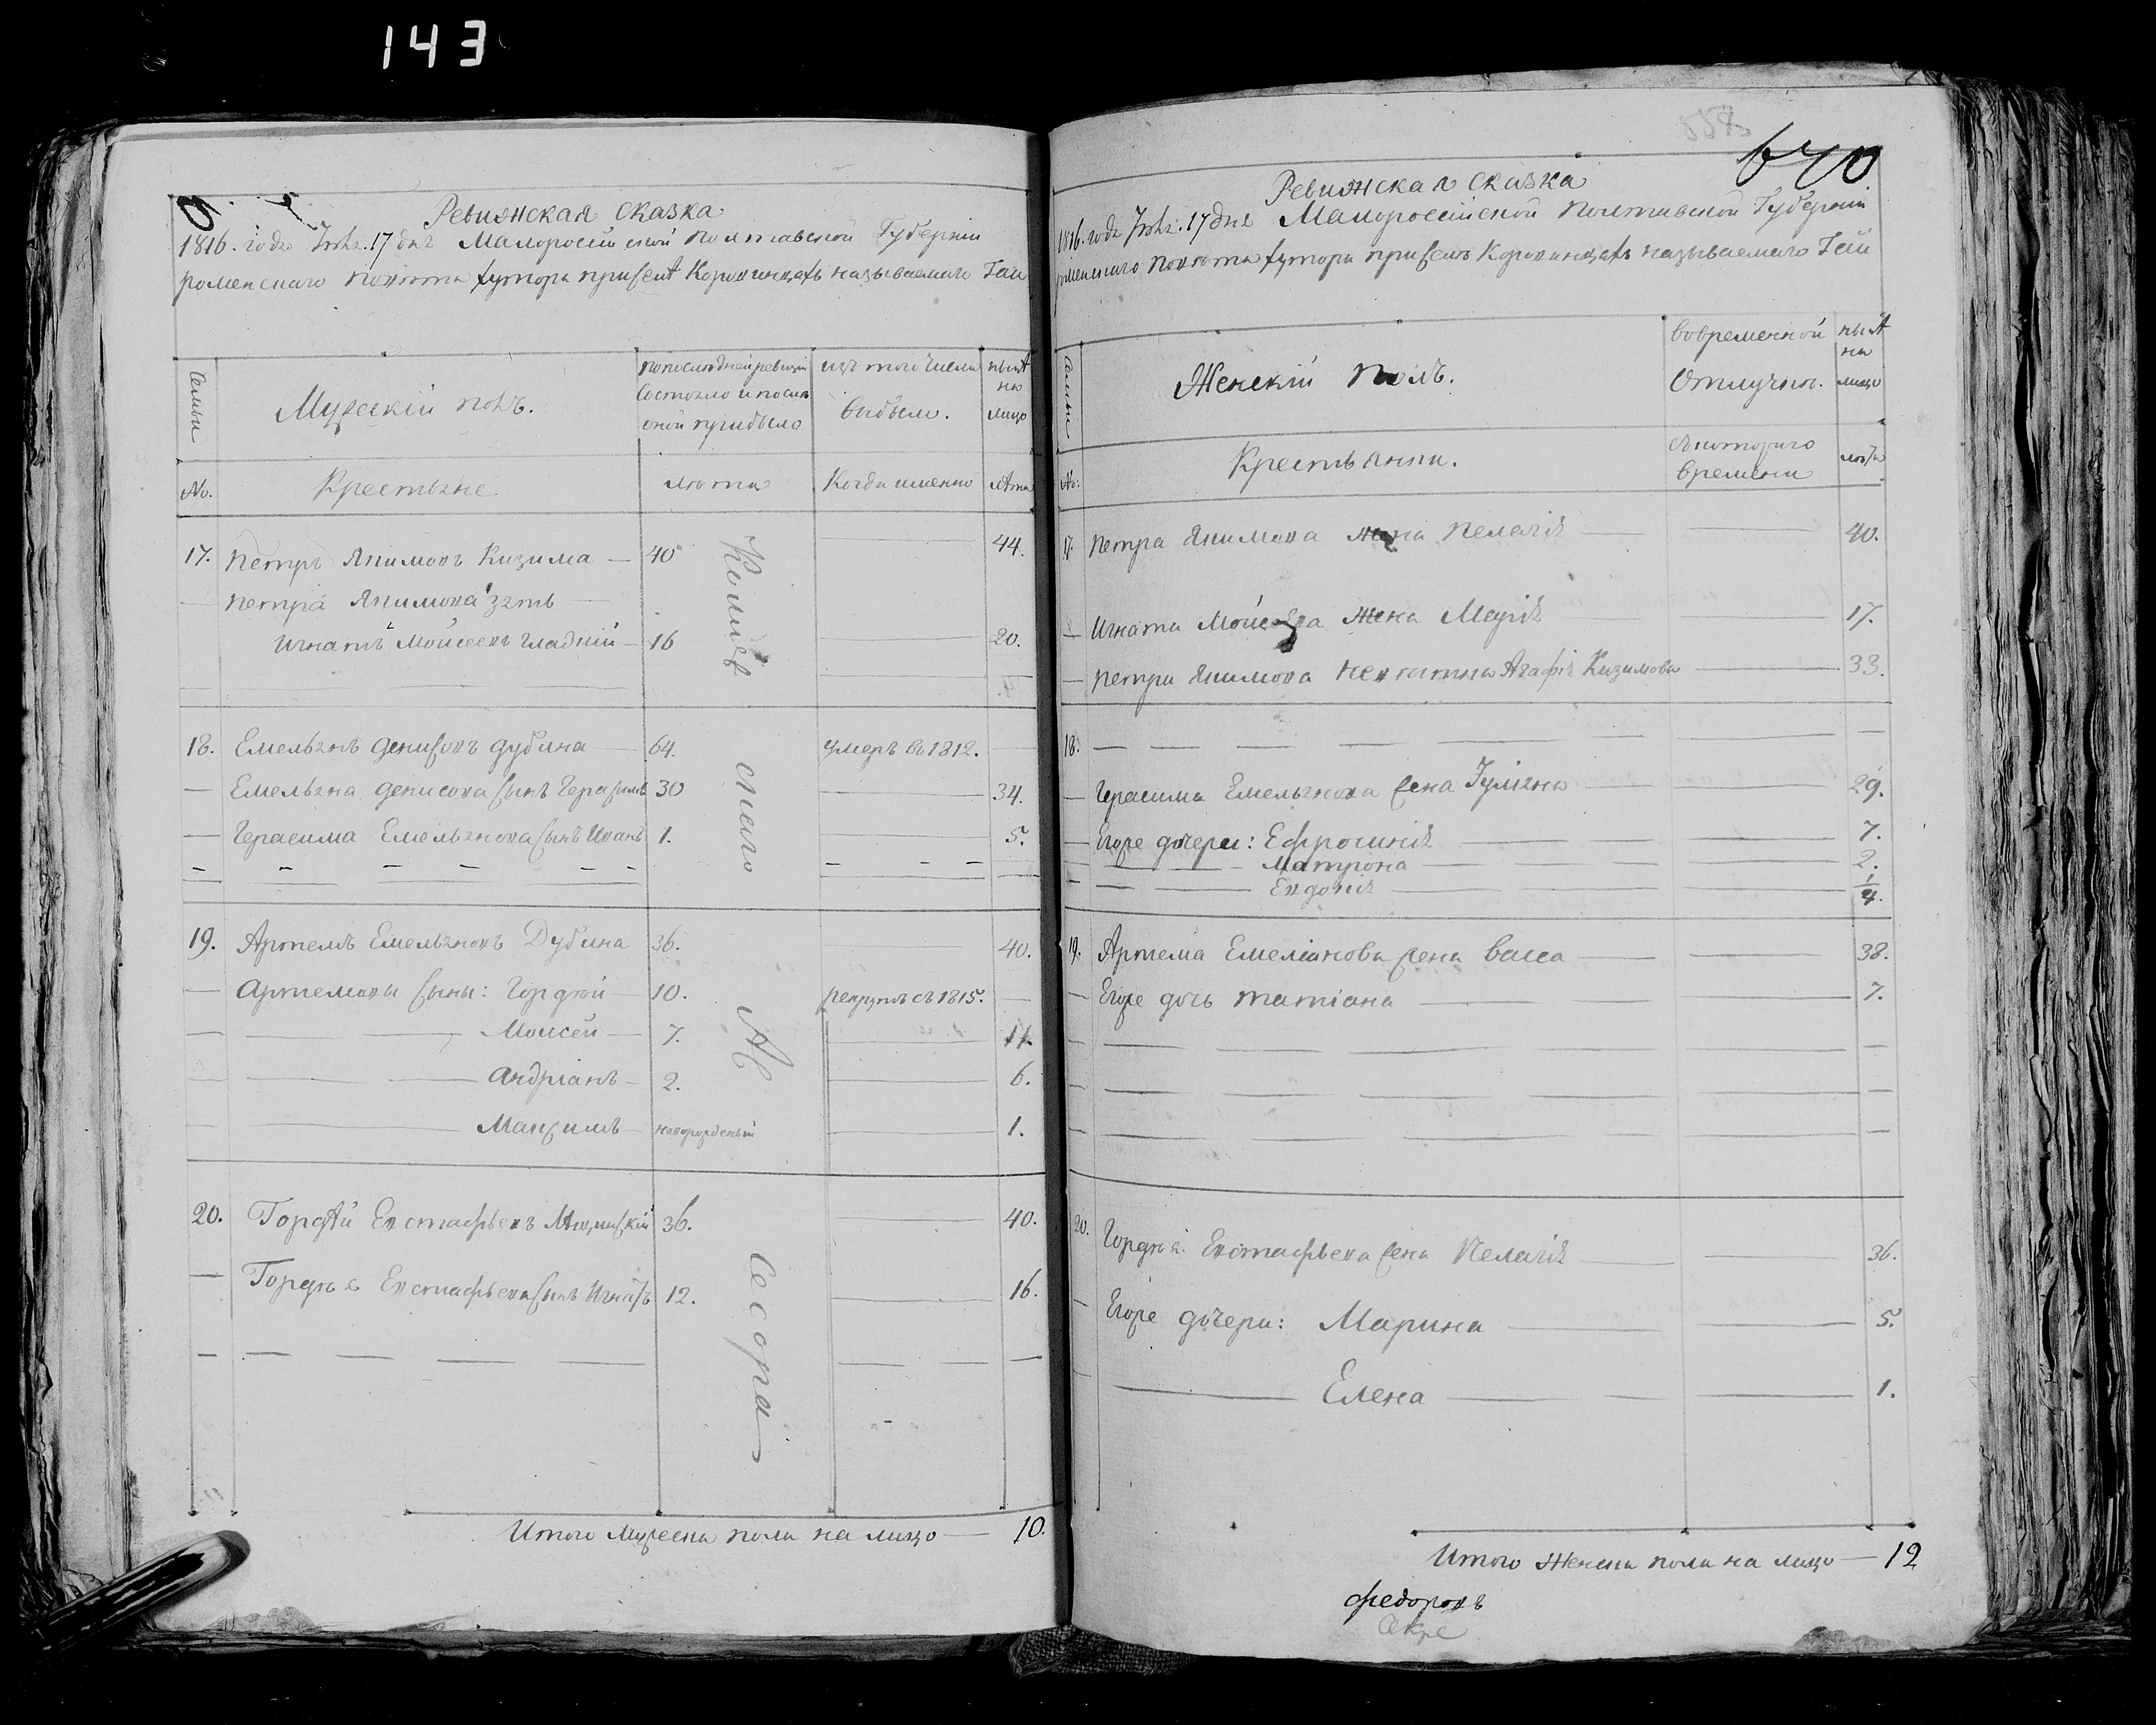 143
Ревизская сказка
1816. года Июля. 17 дня Малоросийской Полтавской Губернии
роменского повѣта хутора при селѣ Коровинцахъ называемаго Гай
Семьи
Мужескій полъ.
По последней ревизіи состояло и после оной прибыло
изъ того числа выбыло.
нынѣ на лицо
No.
Крестьяне.
лѣта
Когда именно
лѣта
17. Петръ Якимовъ Кизима — 40 44.
— Петра Якимова зять
Игнатъ Мойсеевъ Гладкій — 16 20.
18. Емельянъ Денисовъ Дубина 64. умеръ въ 1812.
— Емельяна Денисова сынъ Герасимъ 30 34.
— Герасима Емельянова сынъ Иванъ 1. 5.
19. Артемъ Емельяновъ Дубина 36. 40.
— Артемовы сыны: Гордѣй — 10. рекрутъ съ 1815.
Моисей — 7. 11.
Андріанъ — 2. 6.
Максимъ — новорожденый 1.
20. Гордѣй Евстафьевъ 36. 40.
— Гордѣя Евстафьева сынъ Игнатъ 12. 16.
Итого Мужеска пола на лицо — 10.
Колежскаго Ас сесора
670
Ревизская сказка
1816. года Июля. 17 дня Малоросийской Полтавской Губерніи
роменскаго повѣта хутора при селѣ Коровинцахъ называемаго Гай
Семьи
Женскій полъ.
Во временной отлучки.
нынѣ на лицо
No.
Крестьянки.
съ котораго времени
лѣта
17. Петра Якимова жена Пелагія 40.
— Игната Мойсеева жена Марія 17.
— Петра Якимова Агафія Кизимова 33.
18.
— Герасима Емельянова жена Гуліяна 29.
— Егоже дочери: Ефросинія 7.
Матрона 2.
Евдокія 1/4.
19. Артема Емеліянова жена Васса 38.
— Егоже дочь Татіана 7.
20. Гордѣя Евстафьева жена Пелагія 36.
— Егоже дочери: Марина 5.
Елена 1.
Итого Женска пола на лицо — 12
Федоровъ
Секре